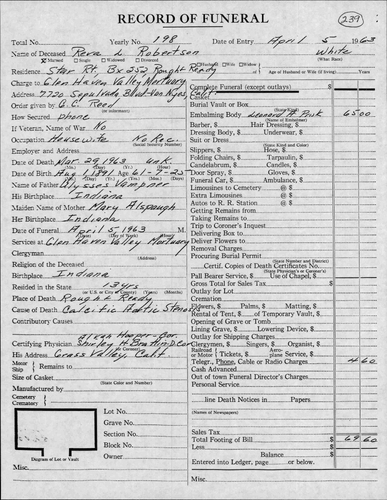 RECORD OF FUNERAL
239
Total No. Yearly No. 198 Date of Entry April 5 1963
Name of Deceased Rora L. Robertson White
(What Race)
Husband Wife Widow
Residence Star Rt. Bx 252 Rought Ready Age of Husband or Wife (if living) Years
Charge to Glen Haven Valley Mortuary
Address 7720 Sepulveda Blvd. Van Nyes Calif
Complete Funeral (except outlays) $
Order given by C.C. Reed
Burial Vault or Box
How Secured phone
Embalming Body Leonard A. 6500
(Name of Embalmer)
If Veteran, Name of War No
Barber, $ Hair Dressing, $
Dressing Body, $ Underwear, $
Occupation Housewife No Rec.
(Social Security Number)
Suit or Dress
(State Kind and Color)
Employer and Address
Slippers, $ Hose, $
Folding Chairs, $ Tarpaulin, $
Date of Death Mar 29, 1963 unk.
Candelabrum, $ Candles, $
Date of Birth Aug 1 1891 Age 61-7-25
Door Spray, $ Gloves, $
Name of Father Ulysses Vampner
Funeral Car, $ Ambulance, $
Limousines to Cemetery @ $
His Birthplace Indiana
Extra Limousines @ $
Maiden Name of Mother Mary Alspaugh
Autos to R. R. Station @ $
Her Birthplace Indiana
Getting Remains from
Taking Remains to
Date of Funeral April 5, 1963 M.
Trip to Coroner's Inquest
Services at Glen Haven Valley Mortuary
Delivering Box to
Clergyman (Address)
Deliver Flowers to
Removal Charges
Religion of the Deceased
Procuring Burial Permit
(State Number and District)
Birthplace Indiana
Certif. Copies of Death Certificates No.
(State Physician's or Coroner's)
Resided in the State 13 yrs
(or U.S. or City or County) (Years) (Months)
Pall Bearer Service, $ Use of Chapel, $
Gross Total for Sales Tax $
Place of Death Rough & Ready
Outlay for Lot
Cremation
Cause of Death Calcitic Aortic Stenosis
Flowers, $ Palms, $ Matting, $
Contributory Causes
Rental of Tent, $ of Temporary Vault, $
Opening of Grave or Tomb
Alvah Hooper - Cor.
Lining Grave, $ Lowering Device, $
Outlay for Shipping Charges
Certifying Physician Shirley H. Bratin, D. Cor
Clergymen, $ Singers, $ Organist, $
His Address Grass Valley, Calif
Railroad or Motor Tickets, $ Aeroplane Service, $
Motor Ship Remains to
Telegr., Phone, Cable or Radio Charges 4 60
Cash Advanced
Size of Casket
(State Color and Number)
Out of town Funeral Director's Charges
Personal Service
Manufactured by
Cemetery
Crematory
line Death Notices in Papers
(Names of Newspapers)
Lot No.
Grave No.
Section No.
Sales Tax
Block No.
Total Footing of Bill $ 69 60
Less $
Owner
Balance $
Diagram of Lot or Vault
Entered into Ledger, page or below.
Misc. Misc.